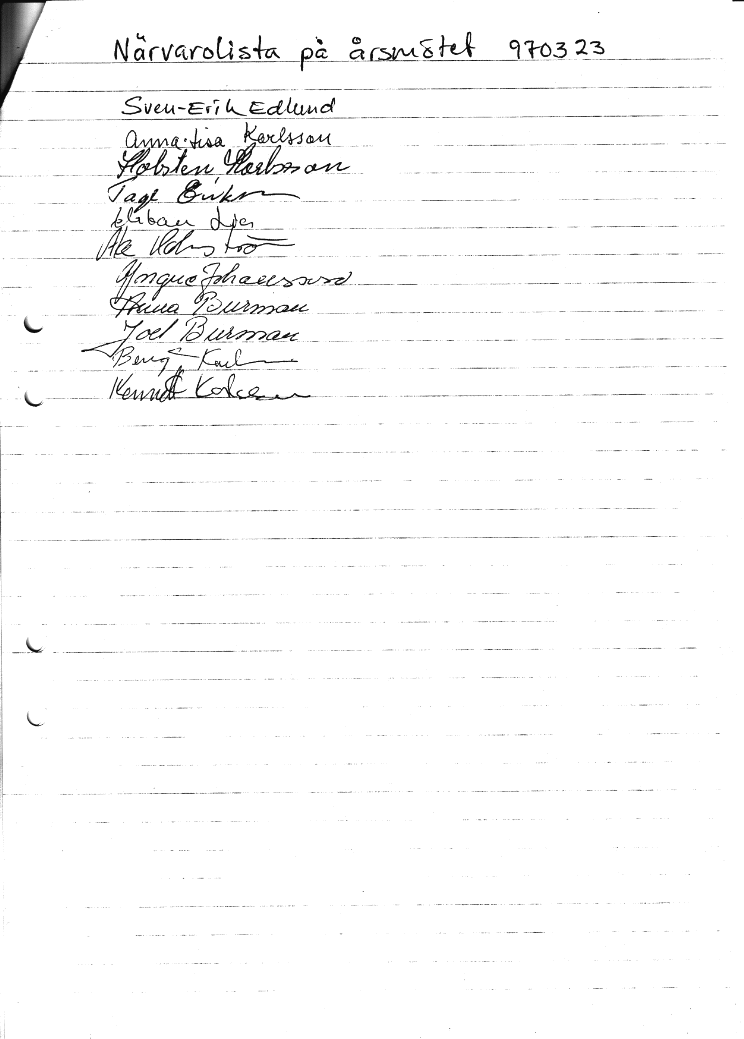 Närvarolista på årsmötet 970323
Sven-Erik Edlund
Anna-Lisa Karlsson
Holsten Karlsson
Tage
Åke Holmström
Yngve Johansson
Anna Burman
Joel Burman
Bengt
Kenneth